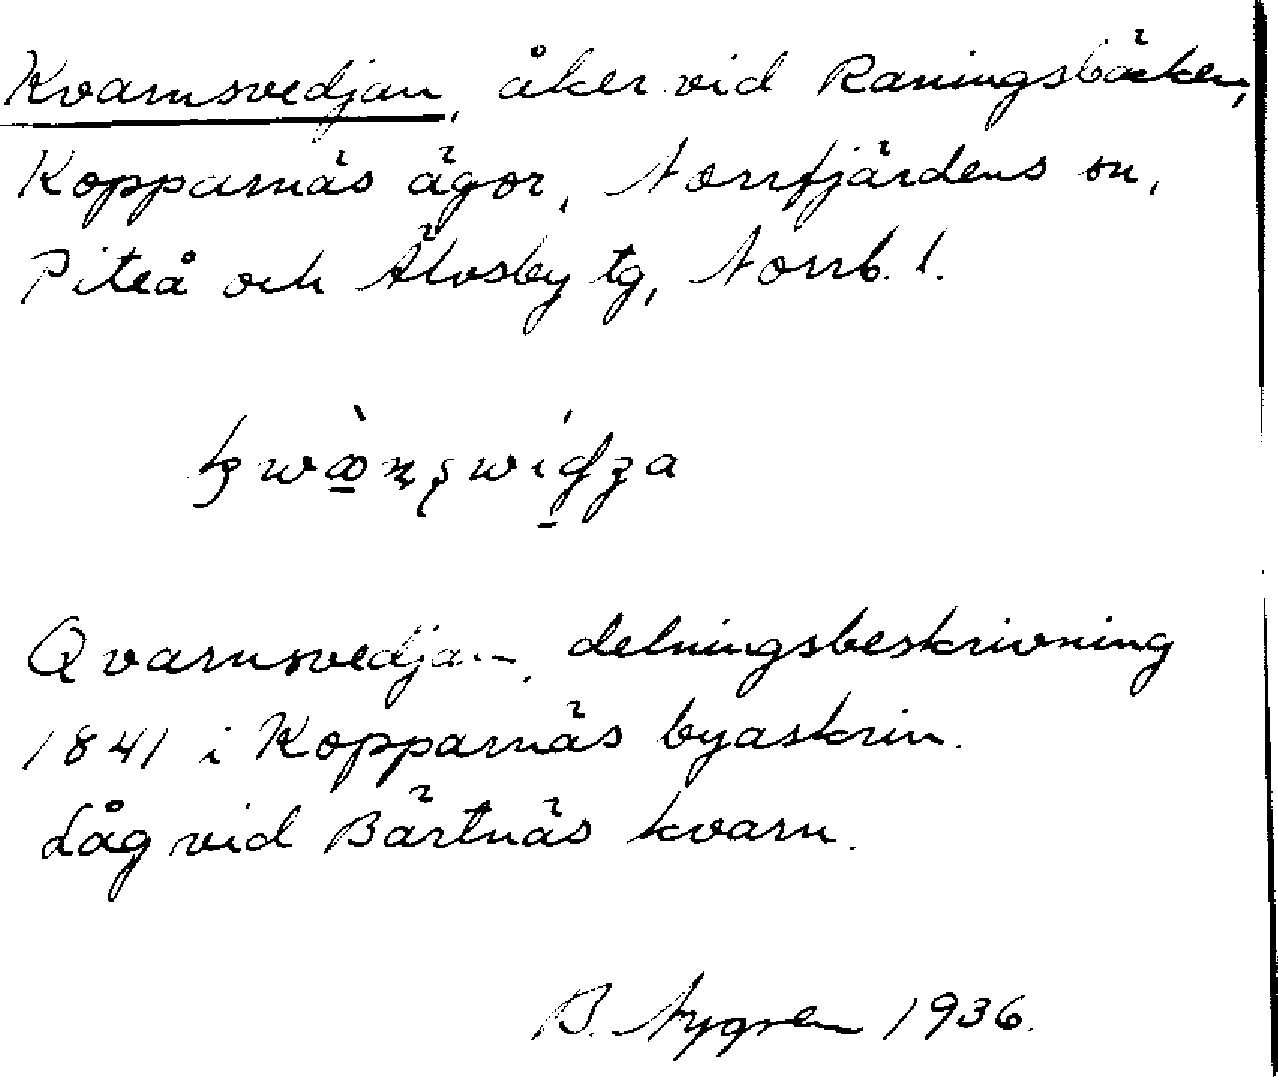 Kvarnsvedjan, åker vid Raningsbäcken,
Kopparnäs ägor, Norrfjärdens sn,
Piteå och Älvsby tg, Norrb. l.
Qvarnsvedjan, delningsbeskrivning
1841 i Kopparnäs byaskrin.
Låg vid Bärtnäs kvarn.
B. Nygren 1936.